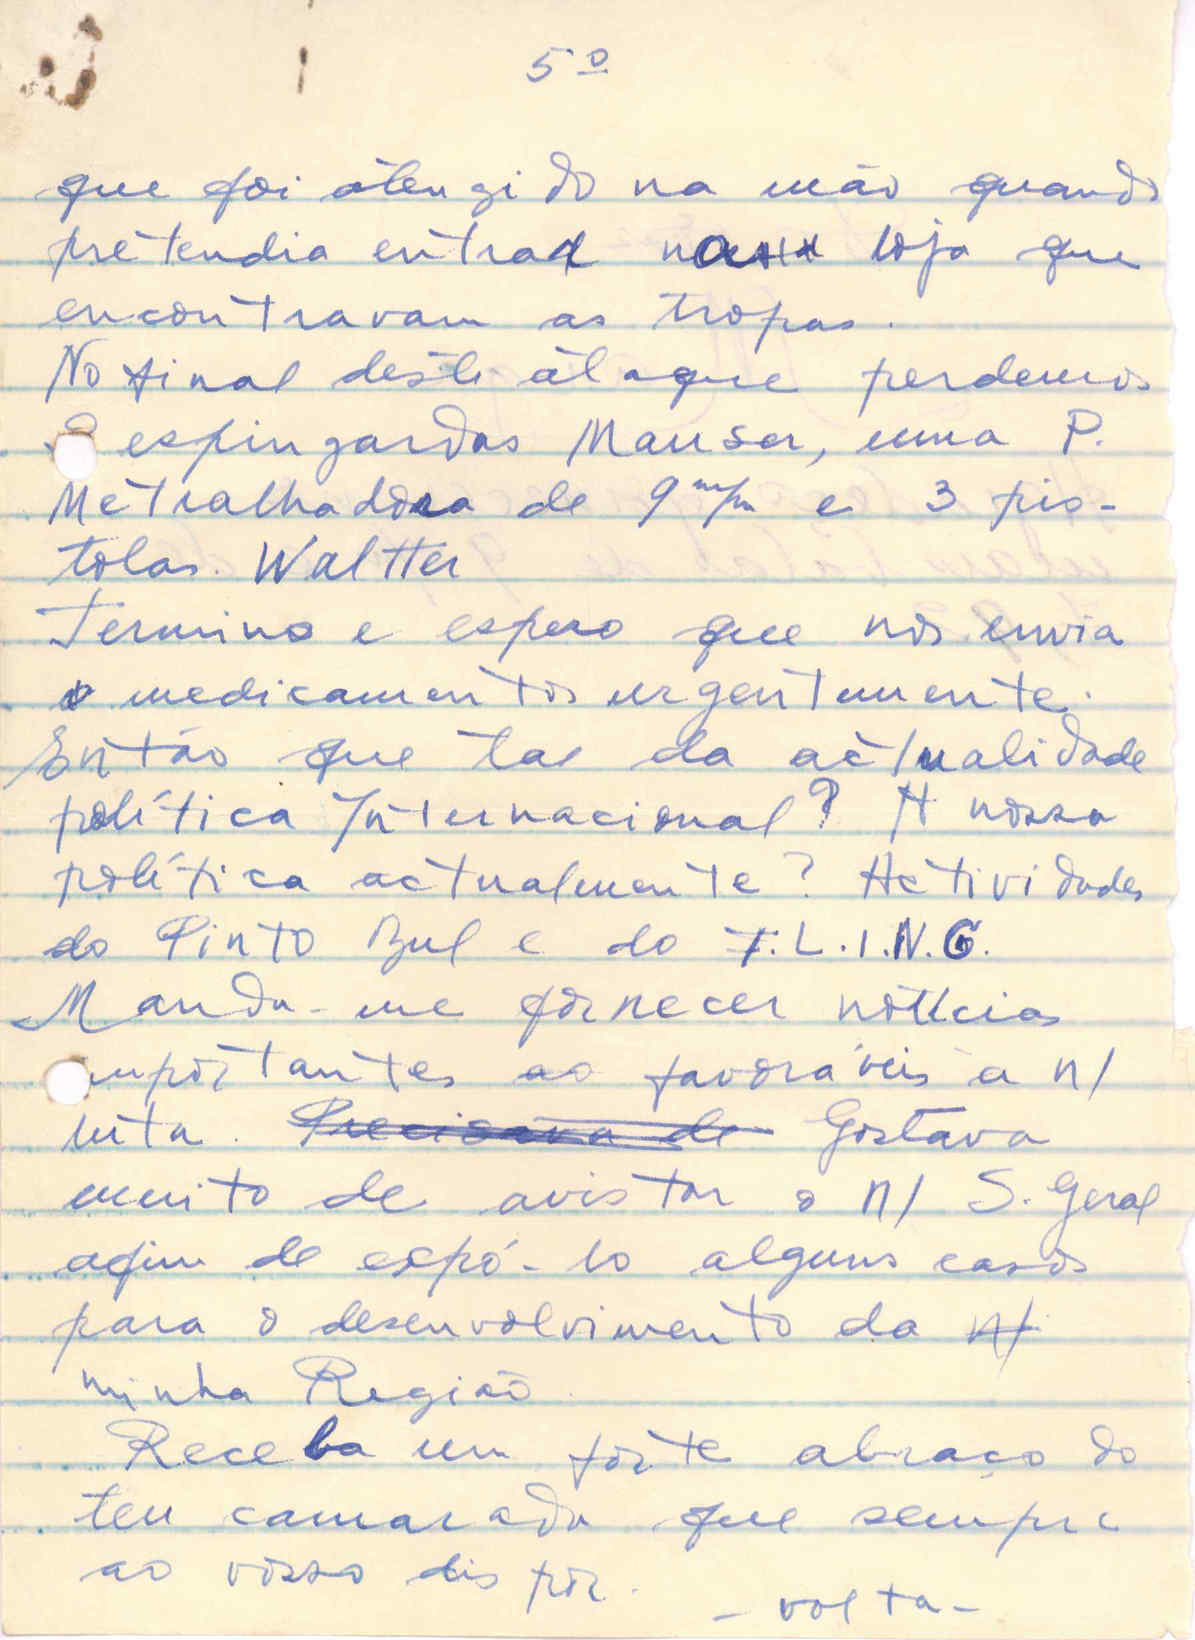 5º
que foi atengido na mão quando
pretendia entrar na loja que
encontravam as tropas.
No final deste ataque perdemos
espingardas Mauser, uma P.
Metralhadora de 9 m/m e 3 pis-
tolas. Waltter
Termino e espero que nos envia
o medicamentos urgentemente.
Então que tal da actualidade
política Internacional? A nossa
política actualmente? Actividades
do Pinto Bul e do F.L.I.N.G.
Manda-me fornecer notícias
importantes ao favoráveis a n/
luta. Precisava de Gostava
muito de avistar o n/ S. Geral
afim de expô-lo alguns casos
para o desenvolvimento da n/
minha Região.
Receba um forte abraço do
teu camarada que sempre
ao vosso dispor.
- volta -